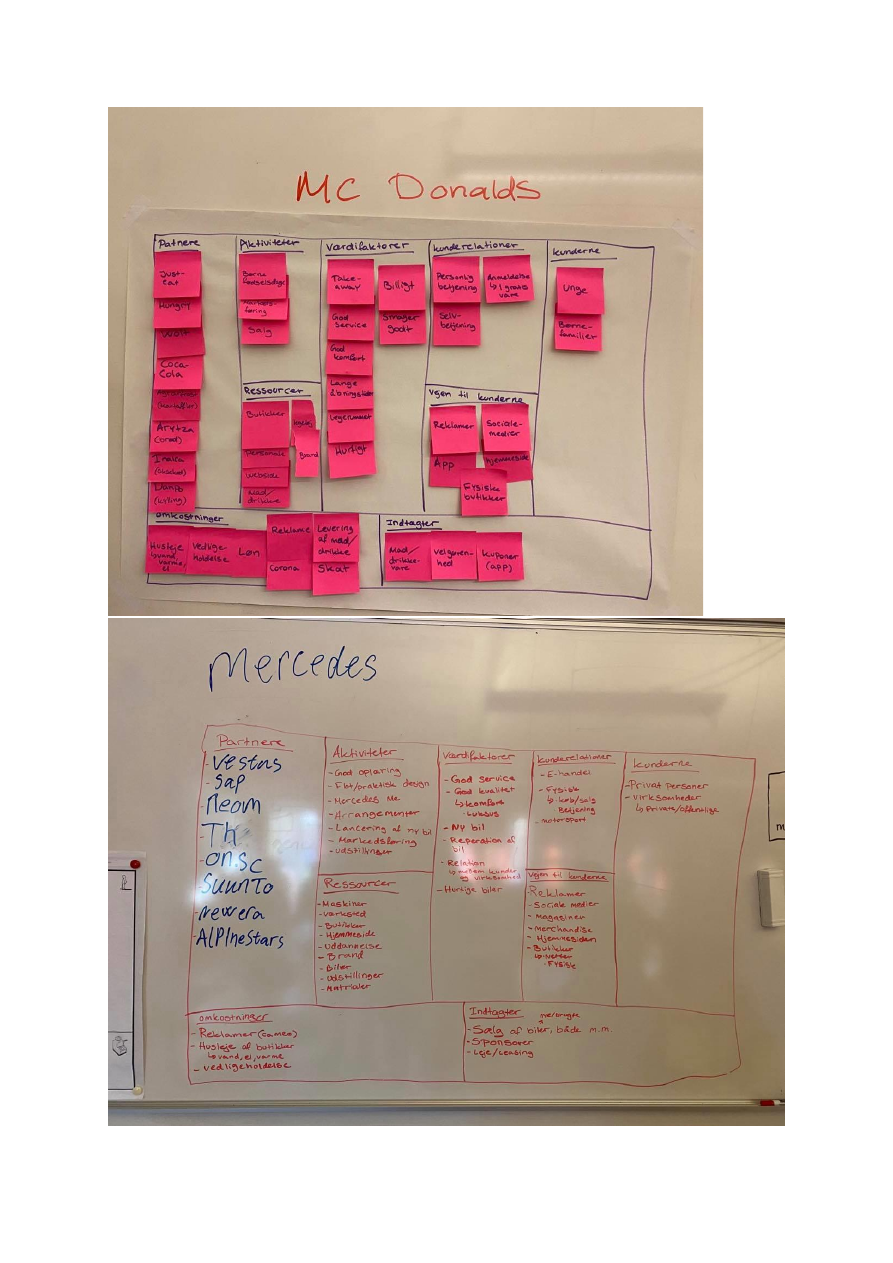 MC Donalds
Patnere
Just-
eat
Hungry
Wolt
Coca-
Cola
Arytza
(brød)
Danpo
(kyling)
Aktiviteter
Børne
fødselsdage
Markeds
føring
Salg
Ressourcer
Butikker
Brand
Personale
Webside
Mad/
drikke
Værdifaktorer
Take-
away
God
service
God
komfort
Lange
åbningstider
Legerummet
Hurtigt
Billigt
Smager
godt
kunderelationer
Personlig
betjening
Selv-
betjening
Anmeldelse
↳ 1 gratis
vare
Vejen til kunderne
Reklamer
Sociale-
medier
App
hjemmeside
Fysiske
butikker
kunderne
Unge
Børne-
familier
omkostninger
Husleje
↳ vand,
varme,
el
Vedlige-
holdelse
Løn
Reklame
Corona
Levering
af mad/
drikke
Skat
Indtægter
Mad/
drikke-
vare
Velgøren-
hed
kuponer
(app)
Mercedes
Partnere
- Vestas
- Sap
- Neom
- TH
- on.sc
- SuunTo
- new era
- AlPlneStars
Aktiviteter
- God oplæring
- Flot/praktisk design
- Mercedes Me
- Arrangementer
- Lancering af ny bil
- Markedsføring
- udstillinger
Ressourcer
- Maskiner
- værksted
- Butikker
- Hjemmeside
- uddannelse
- Brand
- Biler
- udstillinger
- Matrialer
Værdifaktorer
- God service
- God kvalitet
↳ komfort
- Luksus
- Ny bil
- Reperation af
bil
- Relation
↳ mellem kunder
og virksomhed
- Hurtige biler
kunderelationer
- E-handel
- Fysisk
↳ køb/salg
Betjening
- motorsport
Vejen til kunderne
- Reklamer
- Sociale medier
- Magasiner
- Merchandise
- Hjemmesiden
- Butikker
↳ Netter
- Fysisk
kunderne
- Privat personer
- virksomheder
↳ Private/offentlige
omkostninger
- Reklamer (cameo)
- Husleje af butikker
↳ vand, el, varme
- vedligeholdelse
Indtægter
nye/brugte
- Sælg af biler, både m.m.
- Sponsorer
- Leje/Leasing